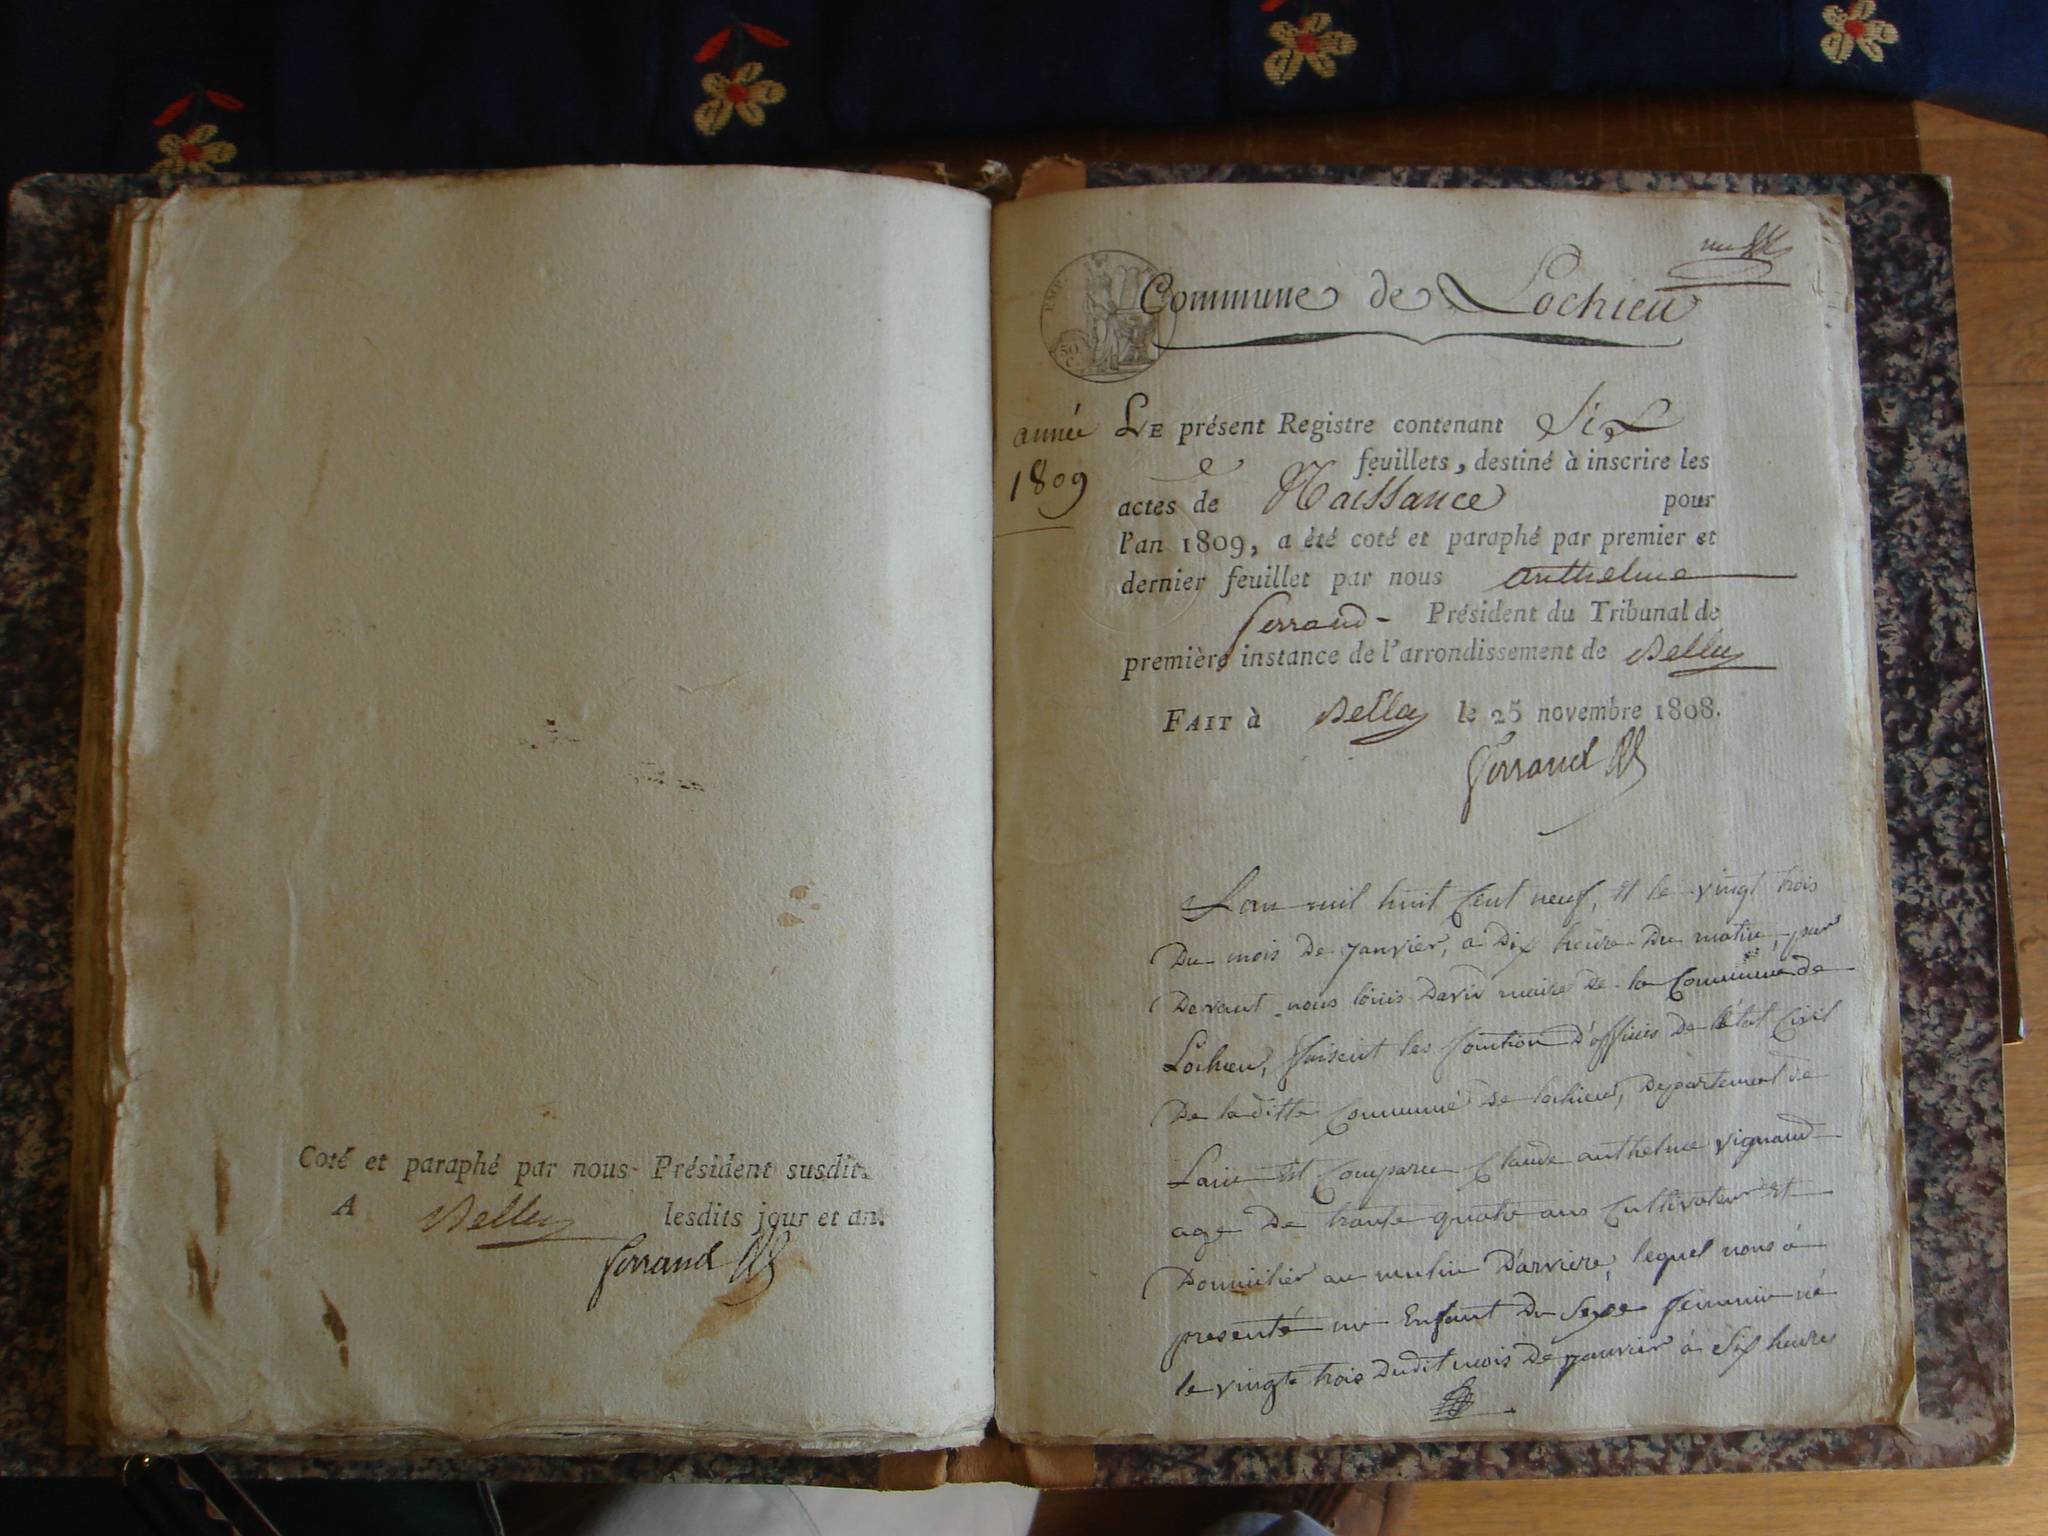 Coté et paraphé par nous Président susdit.
A Belley lesdits jour et an.
Ferrand
Commune de Lochieu
EMP.
50
C.
année
1809
LE présent Registre contenant Six
feuillets, destiné à inscrire les
actes de Naissance pour
l'an 1809, a été coté et paraphé par premier et
dernier feuillet par nous anthelme
ferrand - Président du Tribunal de
première instance de l'arrondissement de Belley
FAIT à Belley le 25 novembre 1808.
Ferrand
Lan mil huit Cent neuf, et le vingt trois
Du mois De janvier, a Dix heure Du matin, par
Devant nous louis David maire de la Commune de
Lochieu, faisent les fonction D'officier De létat Civil
De la ditte Commune de lochieu, Departement de
Lain Est Comparu Claude anthelme vignaud
age De trante quatre ans Cultivateur et
Domicilier au mulin D'arviere, lequel nous à
presenté un Enfant Du Sexe feminin né
le vingt trois dudit mois De janvier à Six heures